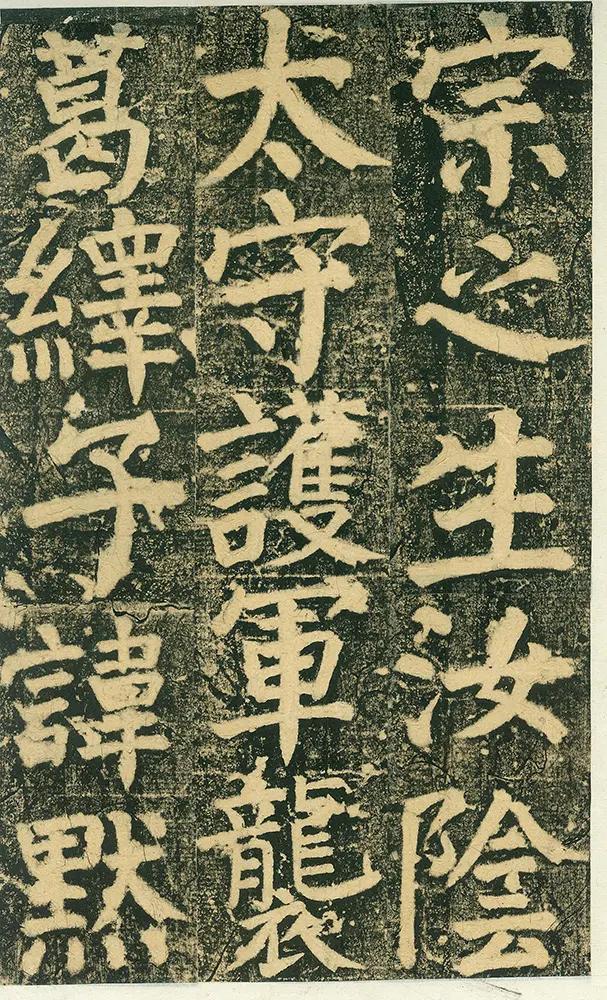 宗之生汝陰
太守護軍襲
葛繹子諱默